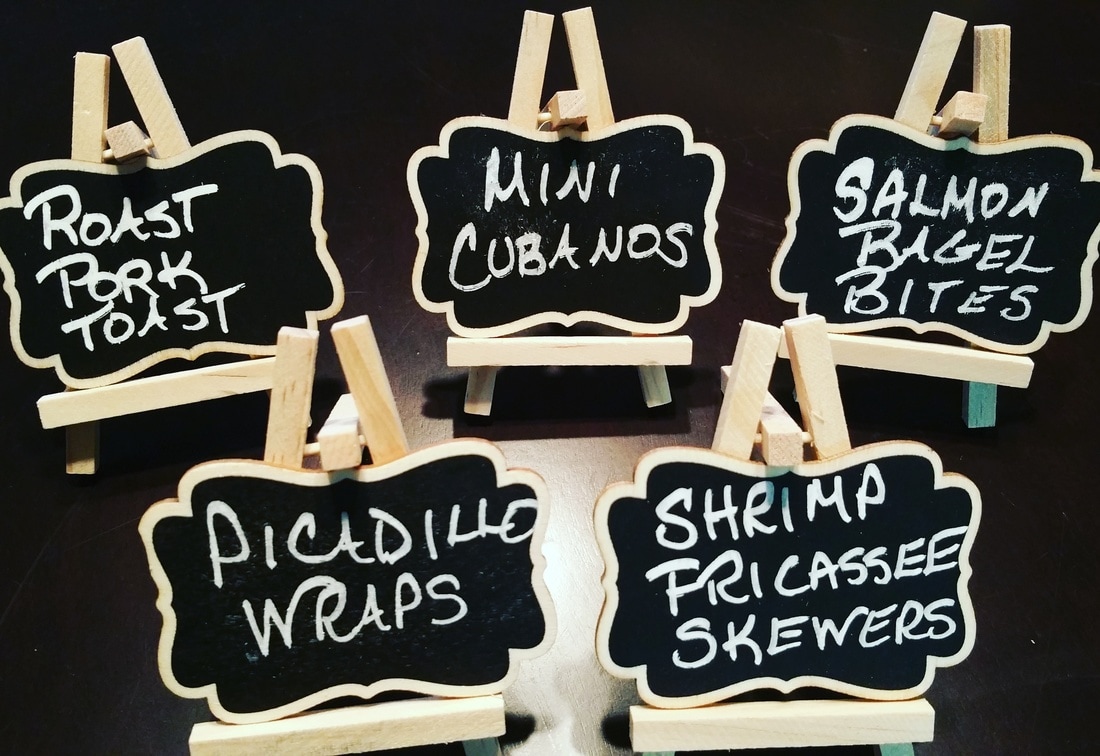 ROAST
PORK
TOAST
MINI
CUBANOS
SALMON
BAGEL
BITES
PICADILLO
WRAPS
SHRIMP
FRICASSEE
SKEWERS